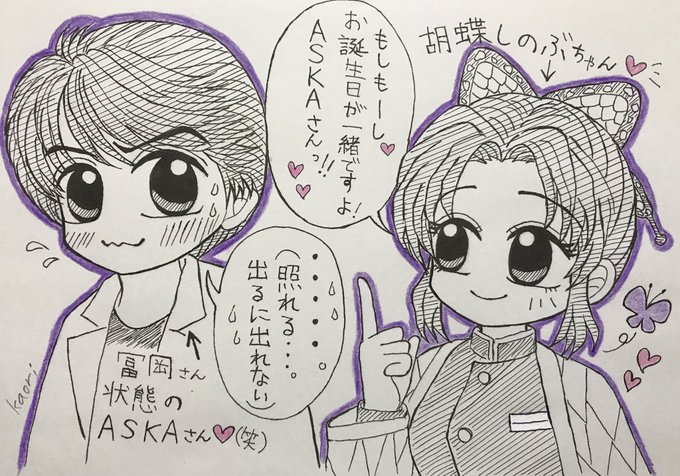 胡蝶しのぶちゃん
もしもーし
お誕生日が一緒ですよ!
ASKAさんっ!!
・・・・・・
(照れる・・・。
出るに出れない)
冨岡さん
状態の
ASKAさん♥(笑)
kaori.